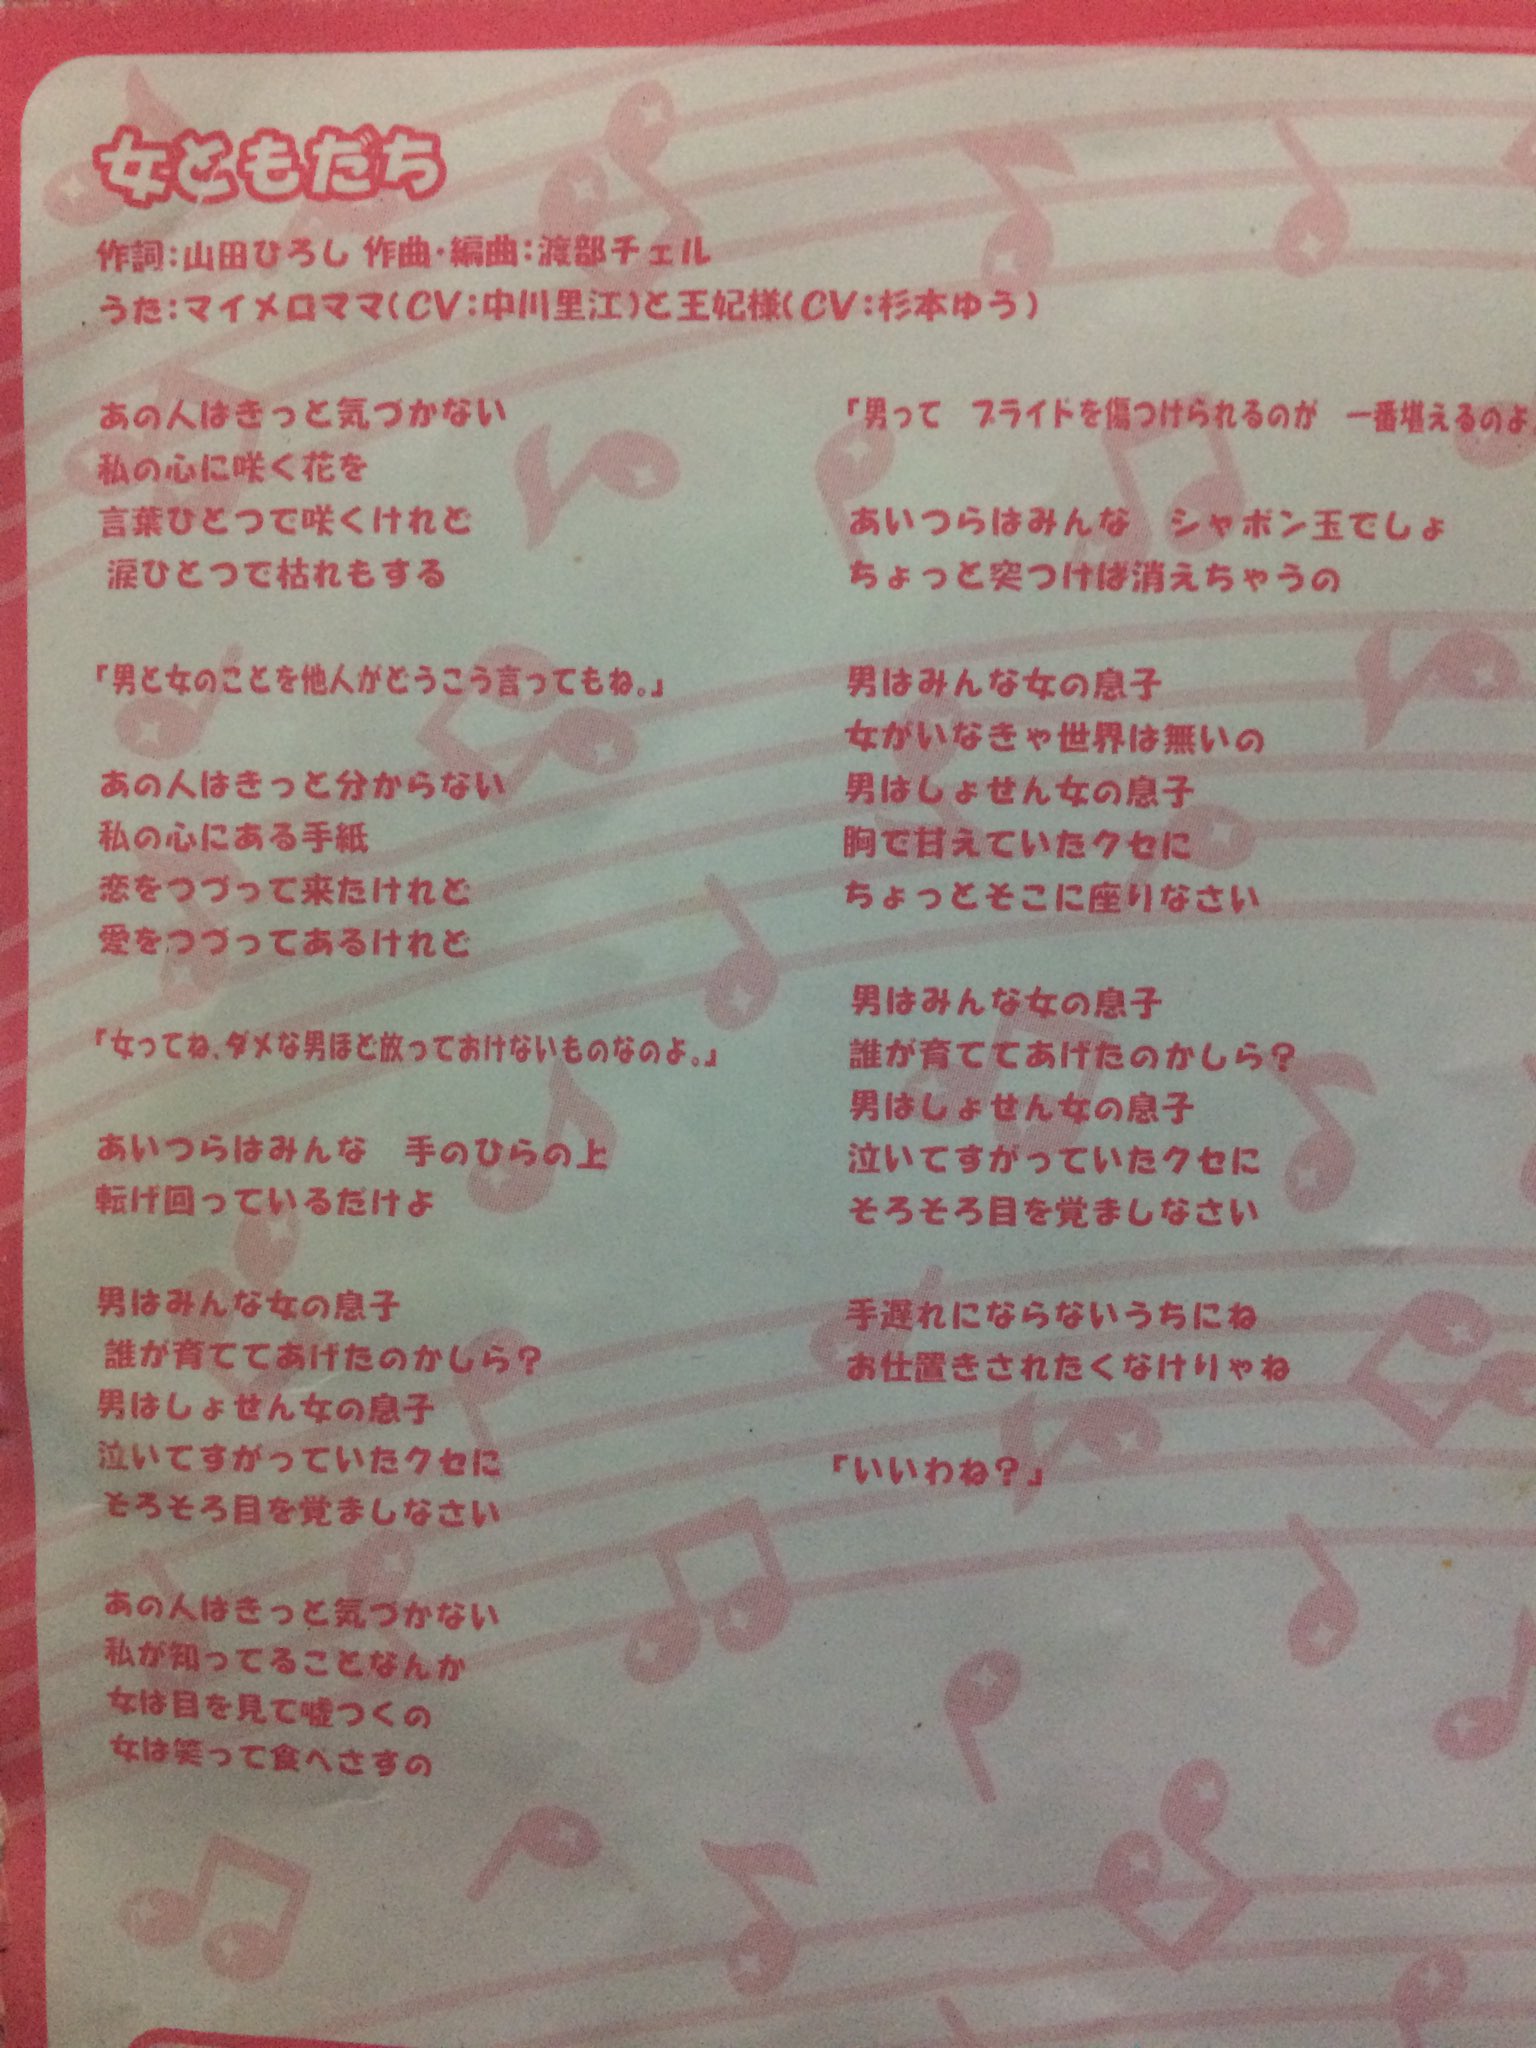 女ともだち
作詞:山田ひろし 作曲・編曲:渡部チェル
うた:マイメロママ(CV:中川里江)と王妃様(CV:杉本ゆう)
あの人はきっと気づかない
私の心に咲く花を
言葉ひとつで咲くけれど
涙ひとつで枯れもする
「男と女のことを他人がどうこう言ってもね。」
あの人はきっと分からない
私の心にある手紙
恋をつづって来たけれど
愛をつづってあるけれど
「女ってね、ダメな男ほど放っておけないものなのよ。」
あいつらはみんな 手のひらの上
転げ回っているだけよ
男はみんな女の息子
誰が育ててあげたのかしら?
男はしょせん女の息子
泣いてすがっていたクセに
そろそろ目を覚ましなさい
あの人はきっと気づかない
私が知ってることなんか
女は目を見て嘘つくの
女は笑って食べさすの
「男って プライドを傷つけられるのが 一番堪えるのよ。
あいつらはみんな シャボン玉でしょ
ちょっと突つけば消えちゃうの
男はみんな女の息子
女がいなきゃ世界は無いの
男はしょせん女の息子
胸で甘えていたクセに
ちょっとそこに座りなさい
男はみんな女の息子
誰が育ててあげたのかしら?
男はしょせん女の息子
泣いてすがっていたクセに
そろそろ目を覚ましなさい
手遅れにならないうちにね
お仕置きされたくなけりゃね
「いいわね?」